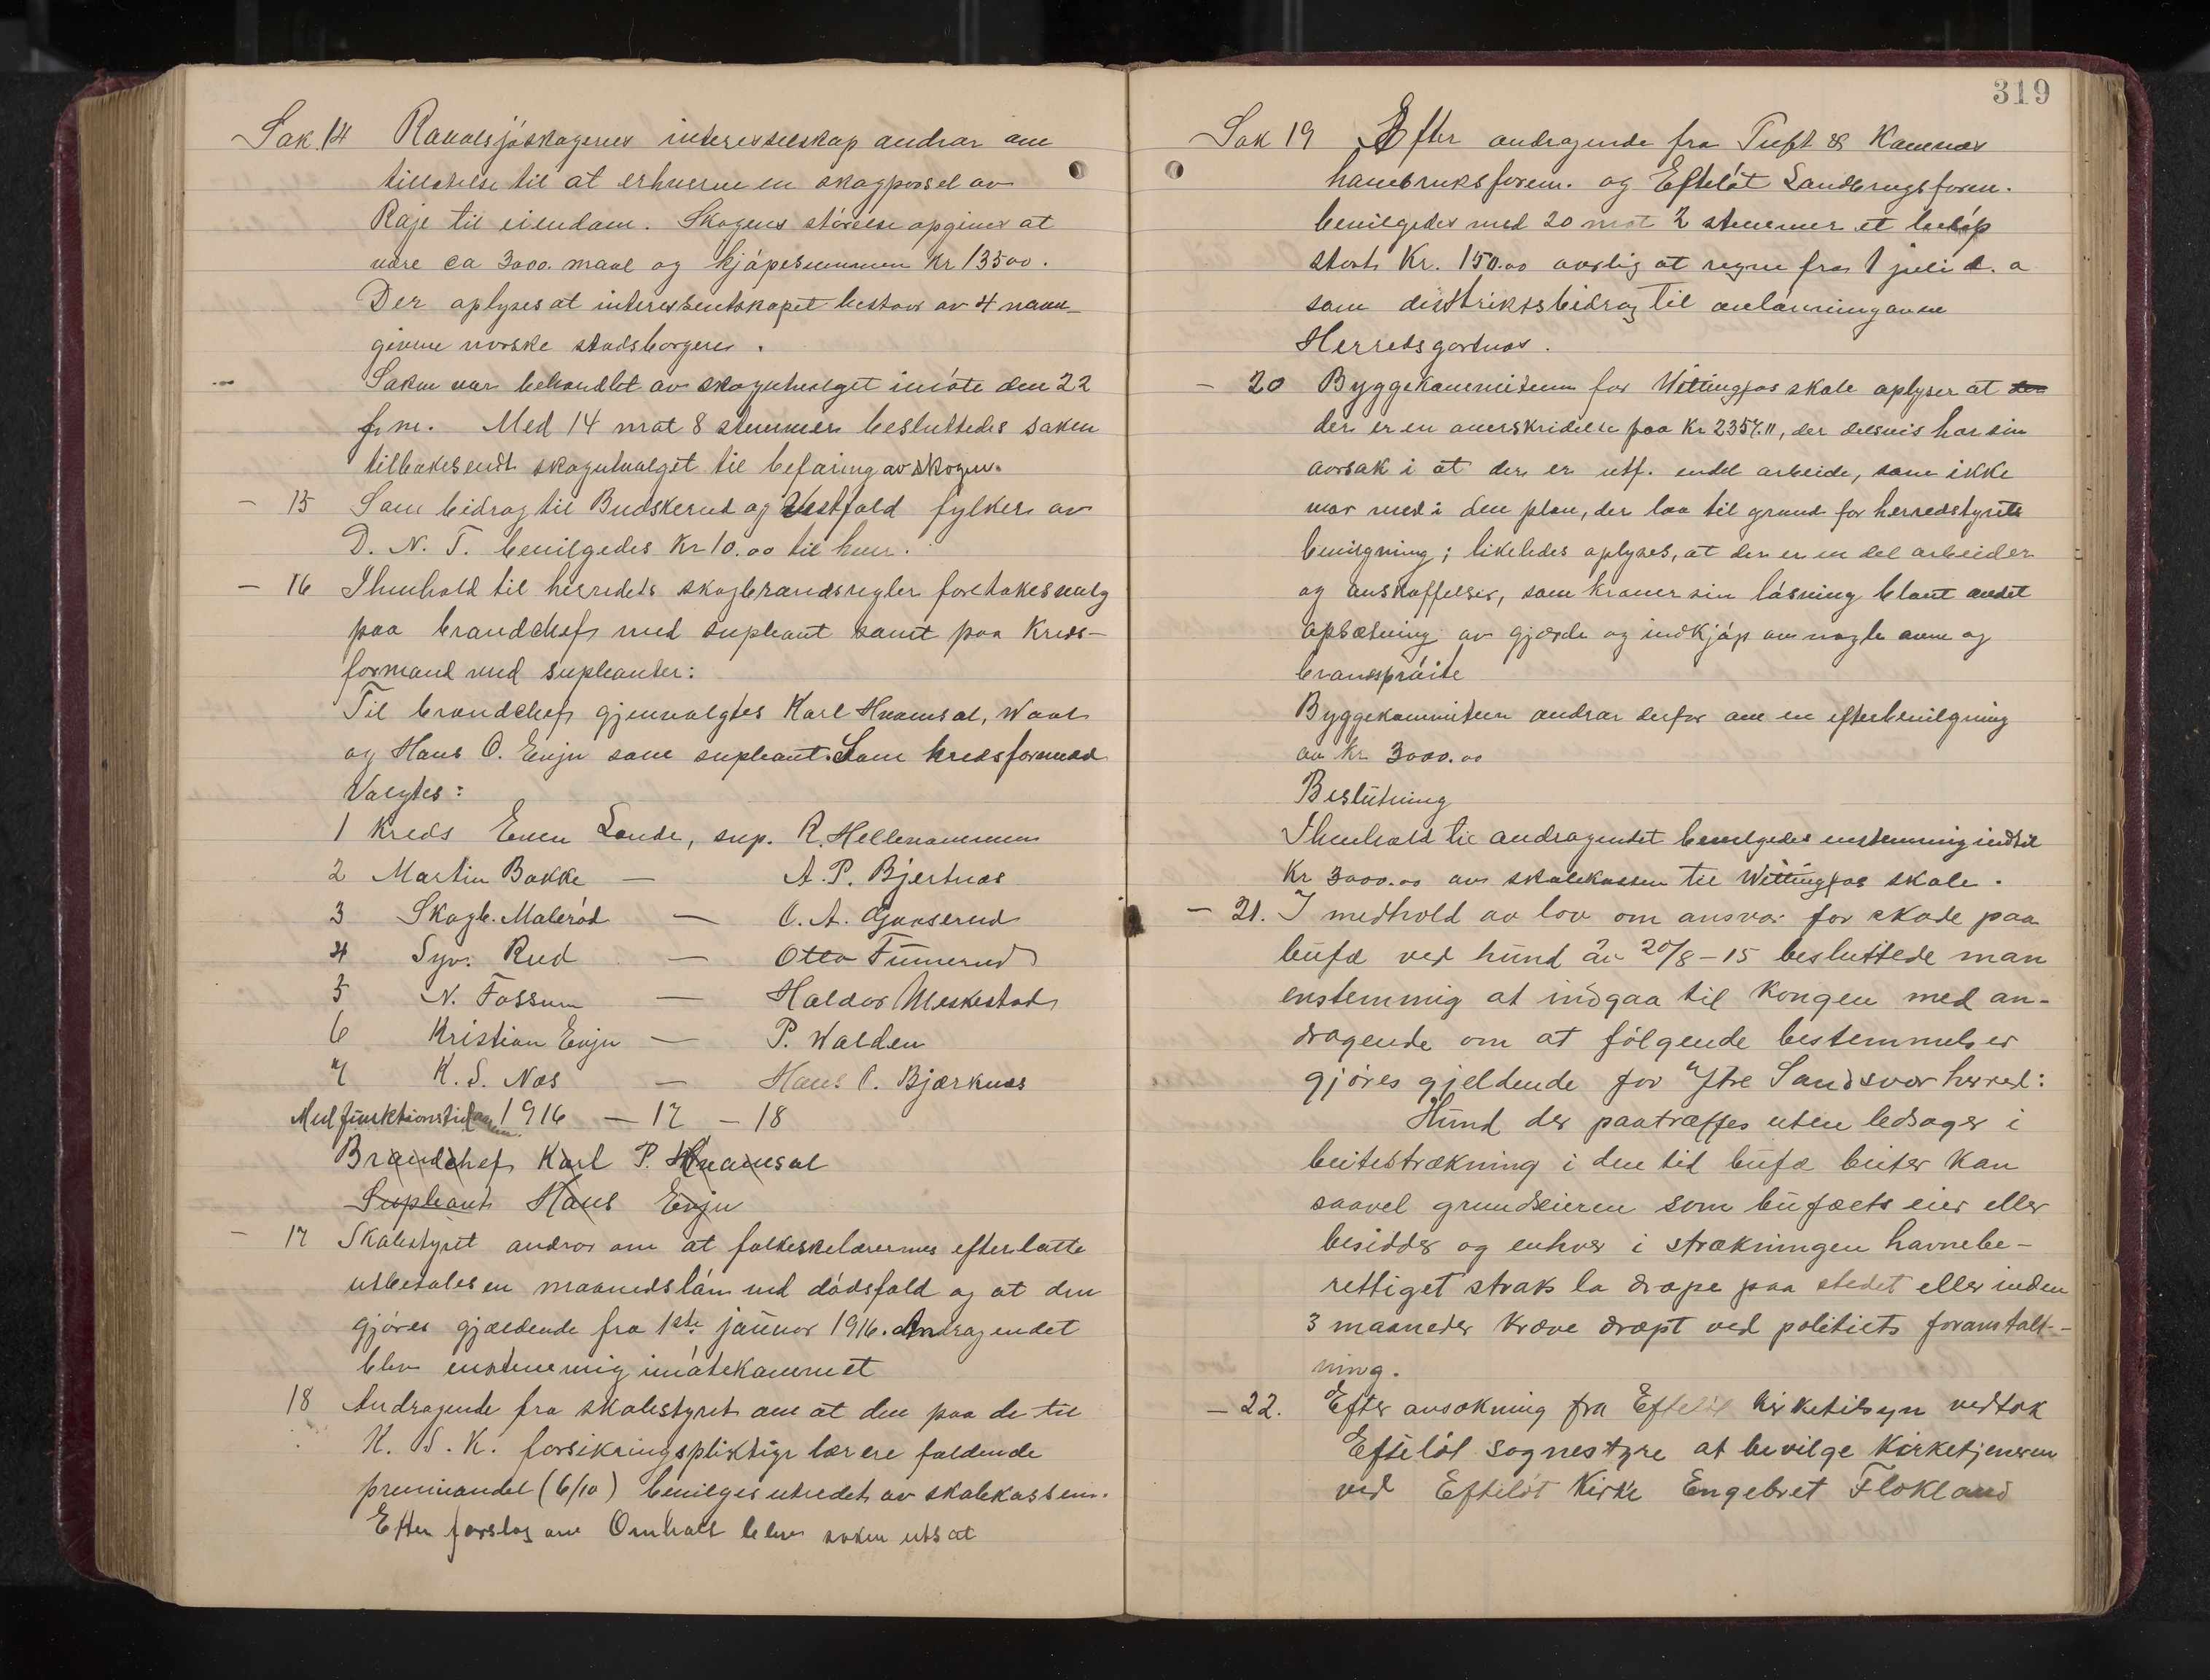 Sak 14 Ravalsjøskogenes interesselskap andrar om
tillatelse til at erhverve en skogparsel av
Raje til eiendom. Skogens størelse opgives at
være ca 3000 maal og kjøpesummen Kr 13500.
Der oplyses at interessentskapet bestaar av 4 navn-
givne norske stadsborgere.
Saken var behandlet av skogutvalget i møte den 22
f.m. Med 14 mot 8 stemmer besluttedes saken
tilbakesendt skogutvalget til befaring av skogen.
— 15 Som bidrag til Buskerud og Vestfold fylker av
D. N. T. bevilgedes Kr 10.00 til hver.
— 16 I henhold til herredets skogbrandsregler foretokes valg
paa brandchef med supleant samt paa Kreds-
formænd med supleanter:
Til brandchef gjenvalgtes Karl Hvamsal,
og Hans O. Evju som supleant. Som kredsformænd
Valgtes:
1 Kreds Even Lande, sup. R. Hellenammen
2 Martin Bakke — A. P. Bjertnæs
3 Skogb. Malerød — O. A. Gunserud
4 Syv. Rud — Otto Tunnerud
5 N. Fossum — Haldor Meskestad
6 Kristian Evju — P. Walden
7 K. S. Næs — Hans O. Bjærknæs
Med funktionstid 1916 — 17 — 18
Brandchef Karl P. Hvamsal
Supleant Hans Evju
— 17 Skolestyret andrar om at folkeskolelærernes efterlatte
utbetales en maanedsløn ved dødsfald og at den
gjøres gjældende fra 1ste januar 1916. Andragendet
blev enstemmig imøtekommet
18 Andragende fra skolestyret om at den paa de til
K. S. K. forsikringspliktige lærere faldende
premieandel (6/10) bevilges utredet av skolekassen.
Efter forslag av Omholt blev saken utsat
319
Sak 19 Efter andragende fra Tuft & Kamnæs
havebruksforen. og Efteløt Landbrugsforen.
bevilgedes med 20 mot 2 stemmer et beløp
stort Kr. 150.00 aarlig at regne fra 1 juli d. a
som distriktsbidrag til avlønning av en
Herredsgartner.
— 20 Byggekommiteen for Wittingfos skole oplyser at der
der er en overskridelse paa Kr 2357.11, der delsvis har sin
aarsak i at der er utf. endel arbeide, som ikke
var med i den plan, der laa til grund for herredstyrets
bevilgning; likeledes oplyses, at der er en del arbeider
og anskaffelser, som kræver sin løsning blant andet
opsætning av gjærde og indkjøp av nogle ovne og
brandsprøite
Byggekommiteen andrar derfor om en efterbevilgning
av Kr 3000.00
Beslutning
I henhold til andragendet bevilgedes enstemmig indtil
Kr 3000.00 av skolekassen til Wittingfos skole.
— 21. I medhold av lov om ansvar for skade paa
bufæ ved hund av 20/8-15 besluttede man
enstemmig at indgaa til Kongen med an-
dragende om at følgende bestemmelser
gjøres gjeldende for Ytre Sandsvær herred:
Hund der paatræffes uten ledsager i
beitestrækning i den tid bufæ beiter kan
saavel grundeieren som bufæets eier eller
besidder og enhver i strækningen havnebe-
rettiget straks la dræpe paa stedet eller inden
3 maaneder kræve dræpt ved politiets foranstalt-
ning.
— 22. Efter ansøkning fra Efteløt kirketilsyn vedtok
Efteløt sognestyre at bevilge Kirketjeneren
ved Efteløt Kirke Engebret Flokland